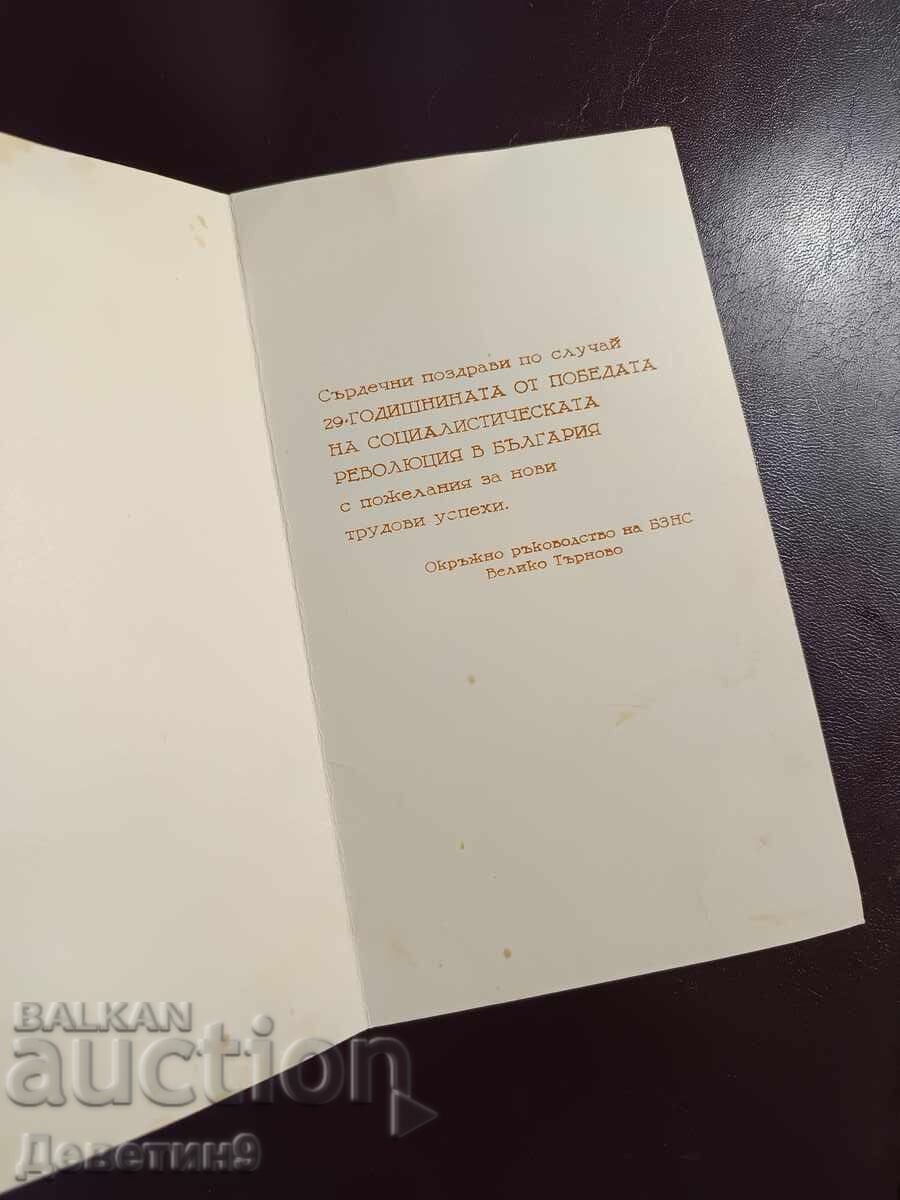 Сърдечни поздрави по случай
29-ГОДИШНИНАТА ОТ ПОБЕДАТА
НА СОЦИАЛИСТИЧЕСКАТА
РЕВОЛЮЦИЯ В БЪЛГАРИЯ
с пожелания за нови
трудови успехи.
Окръжно ръководство на БЗНС
Велико Търново
BALKAN
auction
Деветин9